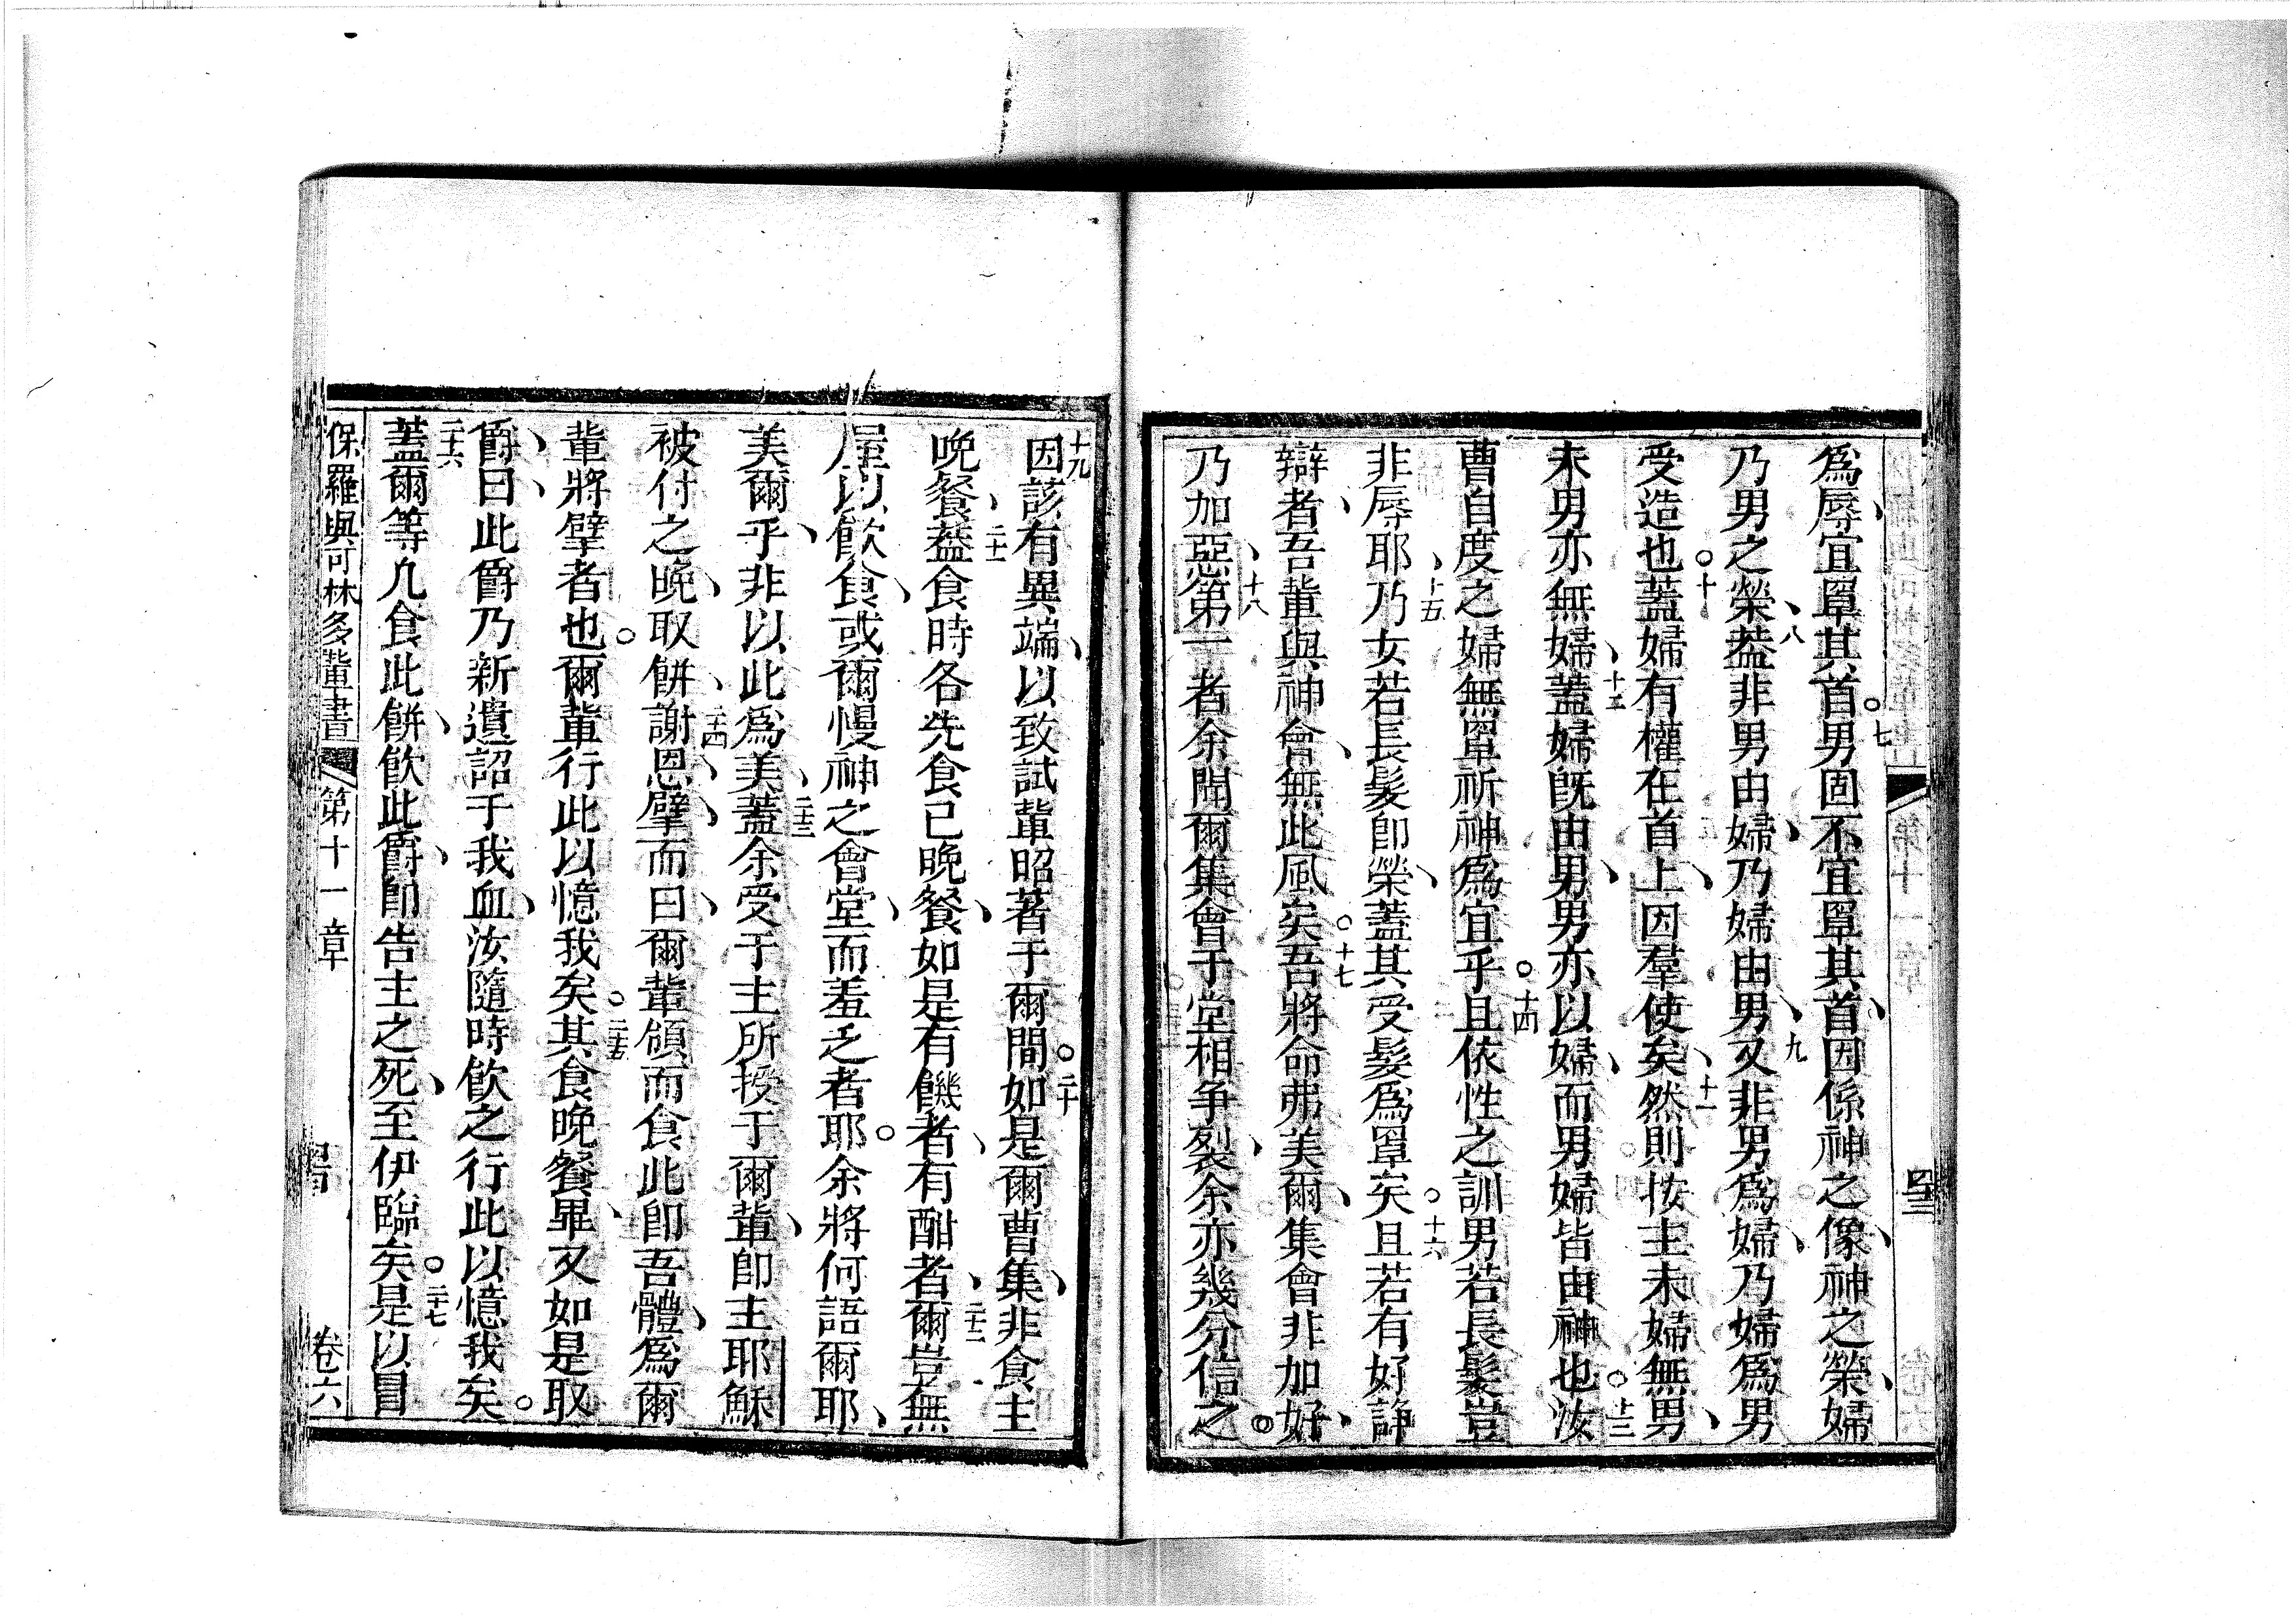 爲辱、宜罩其首。七男固不宜罩其首、因係神之像、神之榮、婦
乃男之榮、八葢非男由婦、乃婦由男、九又非男爲婦、乃婦爲男
受造也。十蓋婦有權在首上、因羣使矣、十一然則按主未婦無男、
未男亦無婦、十二蓋婦既由男、男亦以婦、而男婦皆由神也。十三汝
曹自度之婦無罩祈神爲宜乎。十四且依性之訓男若長髮豈
非辱耶、十五乃女若長髮卽榮、蓋其受髮爲罩矣。十六且若有好諍
辯者、吾輩與神會、無此風矣。十七吾將命弗美爾、集會非加好、
乃加惡、十八第一者余聞爾集會于堂相争裂、余亦幾分信之。
十九因該有異端、以致試輩昭著于爾間。二十如是爾曹集、非食主
晩餐、二十一葢食時各先食己晩餐、如是有饑者、有酣者、二十二爾豈無
屋以飮食、或爾慢神之會堂、而羞乏者耶。余將何語爾耶、
美爾乎、非以此爲美、二十三蓋余受于主所授于爾輩、卽主耶穌
被付之晩、取餅、二十四謝恩、擘、而曰、爾輩領而食此卽吾體、爲爾
輩將擘者也。爾輩行此以憶我矣。二十五其食晩餐畢、又如是取
爵、曰、此爵乃新遺詔于我血、汝隨時飮之行此以憶我矣。
二十六蓋爾等凢食此餅、飮此爵、卽告主之死、至伊臨矣。二十七是以冒
保羅與可林多輩書 第十一章 卷六